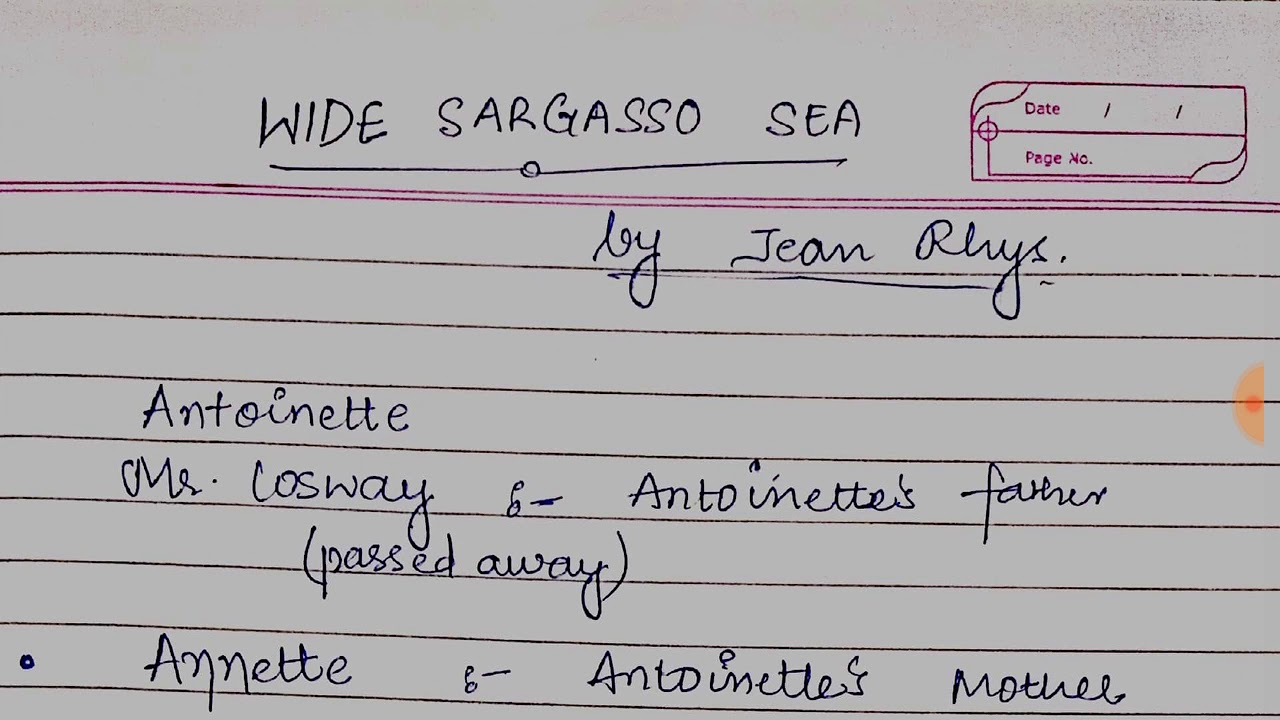 WIDE SARGASSO SEA
Date / /
Page No.
by Jean Rhys.
Antoinette
Mr. Cosway :- Antoinette's father
(passed away)
• Annette :- Antoinette's Mother